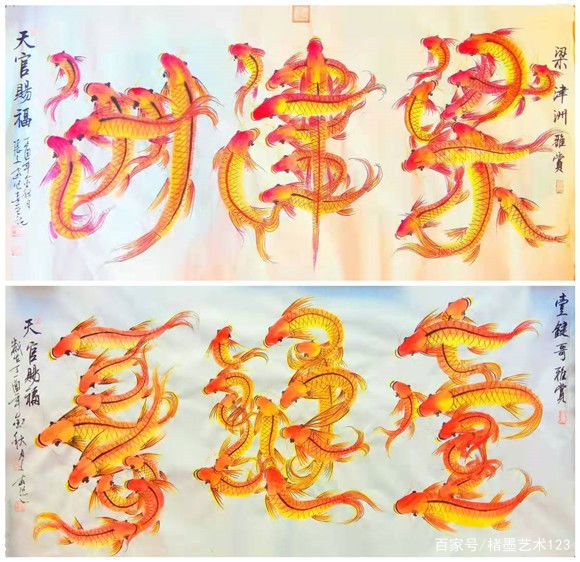 梁津洲雅賞
梁津洲
天官賜福
壹鍵哥雅賞
壹鍵哥
天官賜福
歲在丁酉年金秋月
百家号/楮墨艺术123